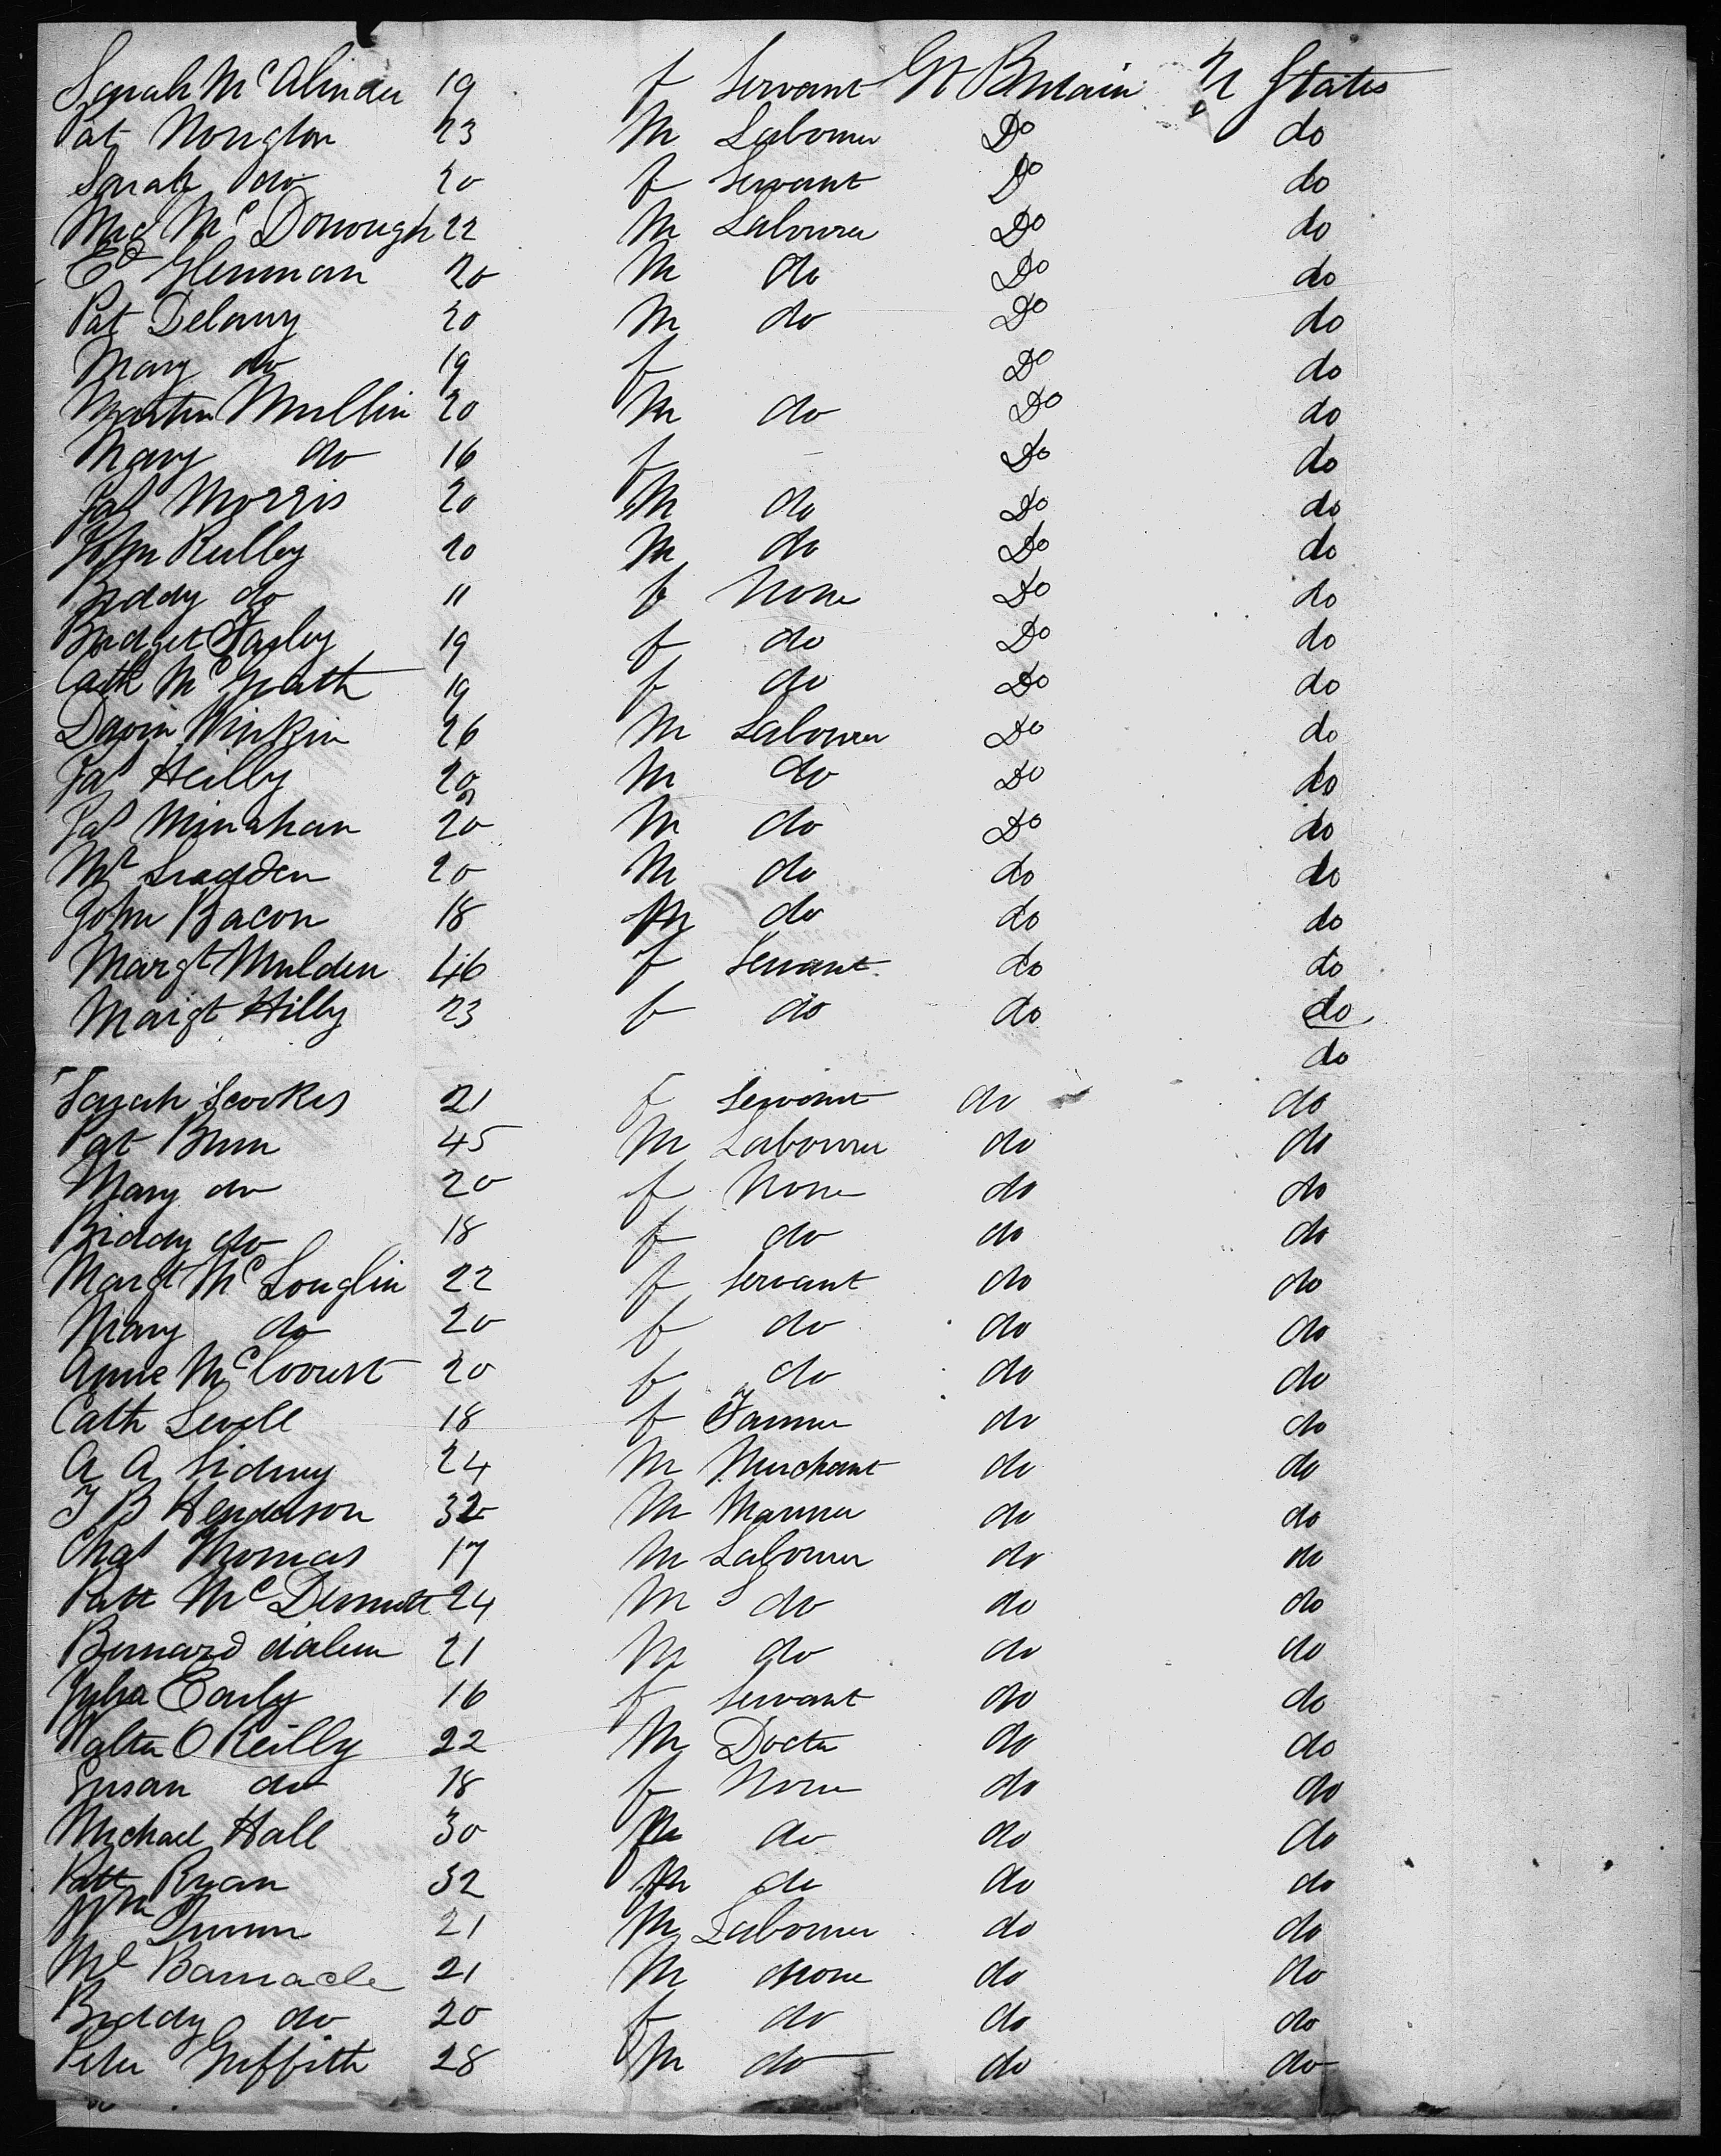 Sarah McAlinder 19 f Servant Gt Britain U States
Pat Noughton 23 M Labourer Do do
Sarah do 20 f Servant Do do
McDonough 22 M Labourer Do do
Ed Glennnan 20 M do Do do
Pat Delany 20 M do Do do
Mary do 19 f Do do
Martin Mullin 20 M do Do do
Mary do 16 f Do do
Jas Morris 20 M do Do do
John Reilley 20 M do Do do
Biddy do 11 f None Do do
Bridget Farley 19 f do Do do
Cath McGrath 19 f do Do do
26 M Labourer Do do
Jas Heilly 20 M do Do do
Jas Minahan 20 M do Do do
20 M do do do
John Bacon 18 M do do do
Margt Mulden 46 f Servant do do
Margt Hilly 23 f do do do
do
Sarah 21 f Servant do do
Pat 45 M Labourer do do
Mary do 20 f None do do
Biddy do 18 f do do do
Margt McLouglin 22 f Servant do do
Mary do 20 f do do do
Anne McCourt 20 f do do do
Cath 18 f Farmer do do
A A Sidney 24 M Merchant do do
J B Henderson 32 M Mariner do do
Chas Thomas 17 M Labourer do do
Patt McDermott 24 M do do do
Bernard 21 M do do do
Julia Early 16 f Servant do do
Walter O Reilly 22 M Docter do do
Susan do 18 f None do do
Michael Hall 30 M do do do
Patt Ryan 32 M do do do
Wm 21 M Labourer do do
Ml Barnacle 21 M None do do
Biddy do 20 f do do do
Peter Griffith 28 M do do do